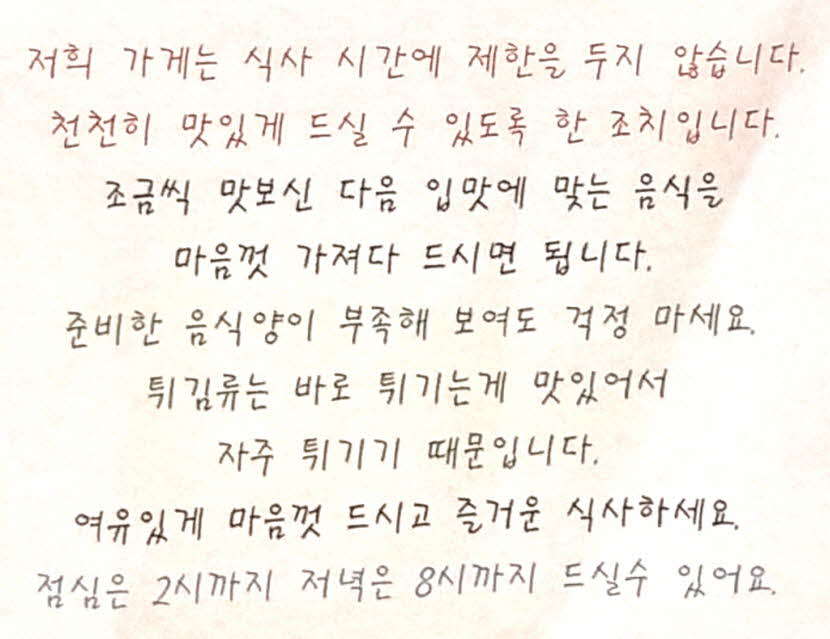 저희 가게는 식사 시간에 제한을 두지 않습니다.
천천히 맛있게 드실 수 있도록 한 조치입니다.
조금씩 맛보신 다음 입맛에 맞는 음식을
마음껏 가져다 드시면 됩니다.
준비한 음식양이 부족해 보여도 걱정 마세요.
튀김류는 바로 튀기는게 맛있어서
자주 튀기기 때문입니다.
여유있게 마음껏 드시고 즐거운 식사하세요.
점심은 2시까지 저녁은 8시까지 드실수 있어요.